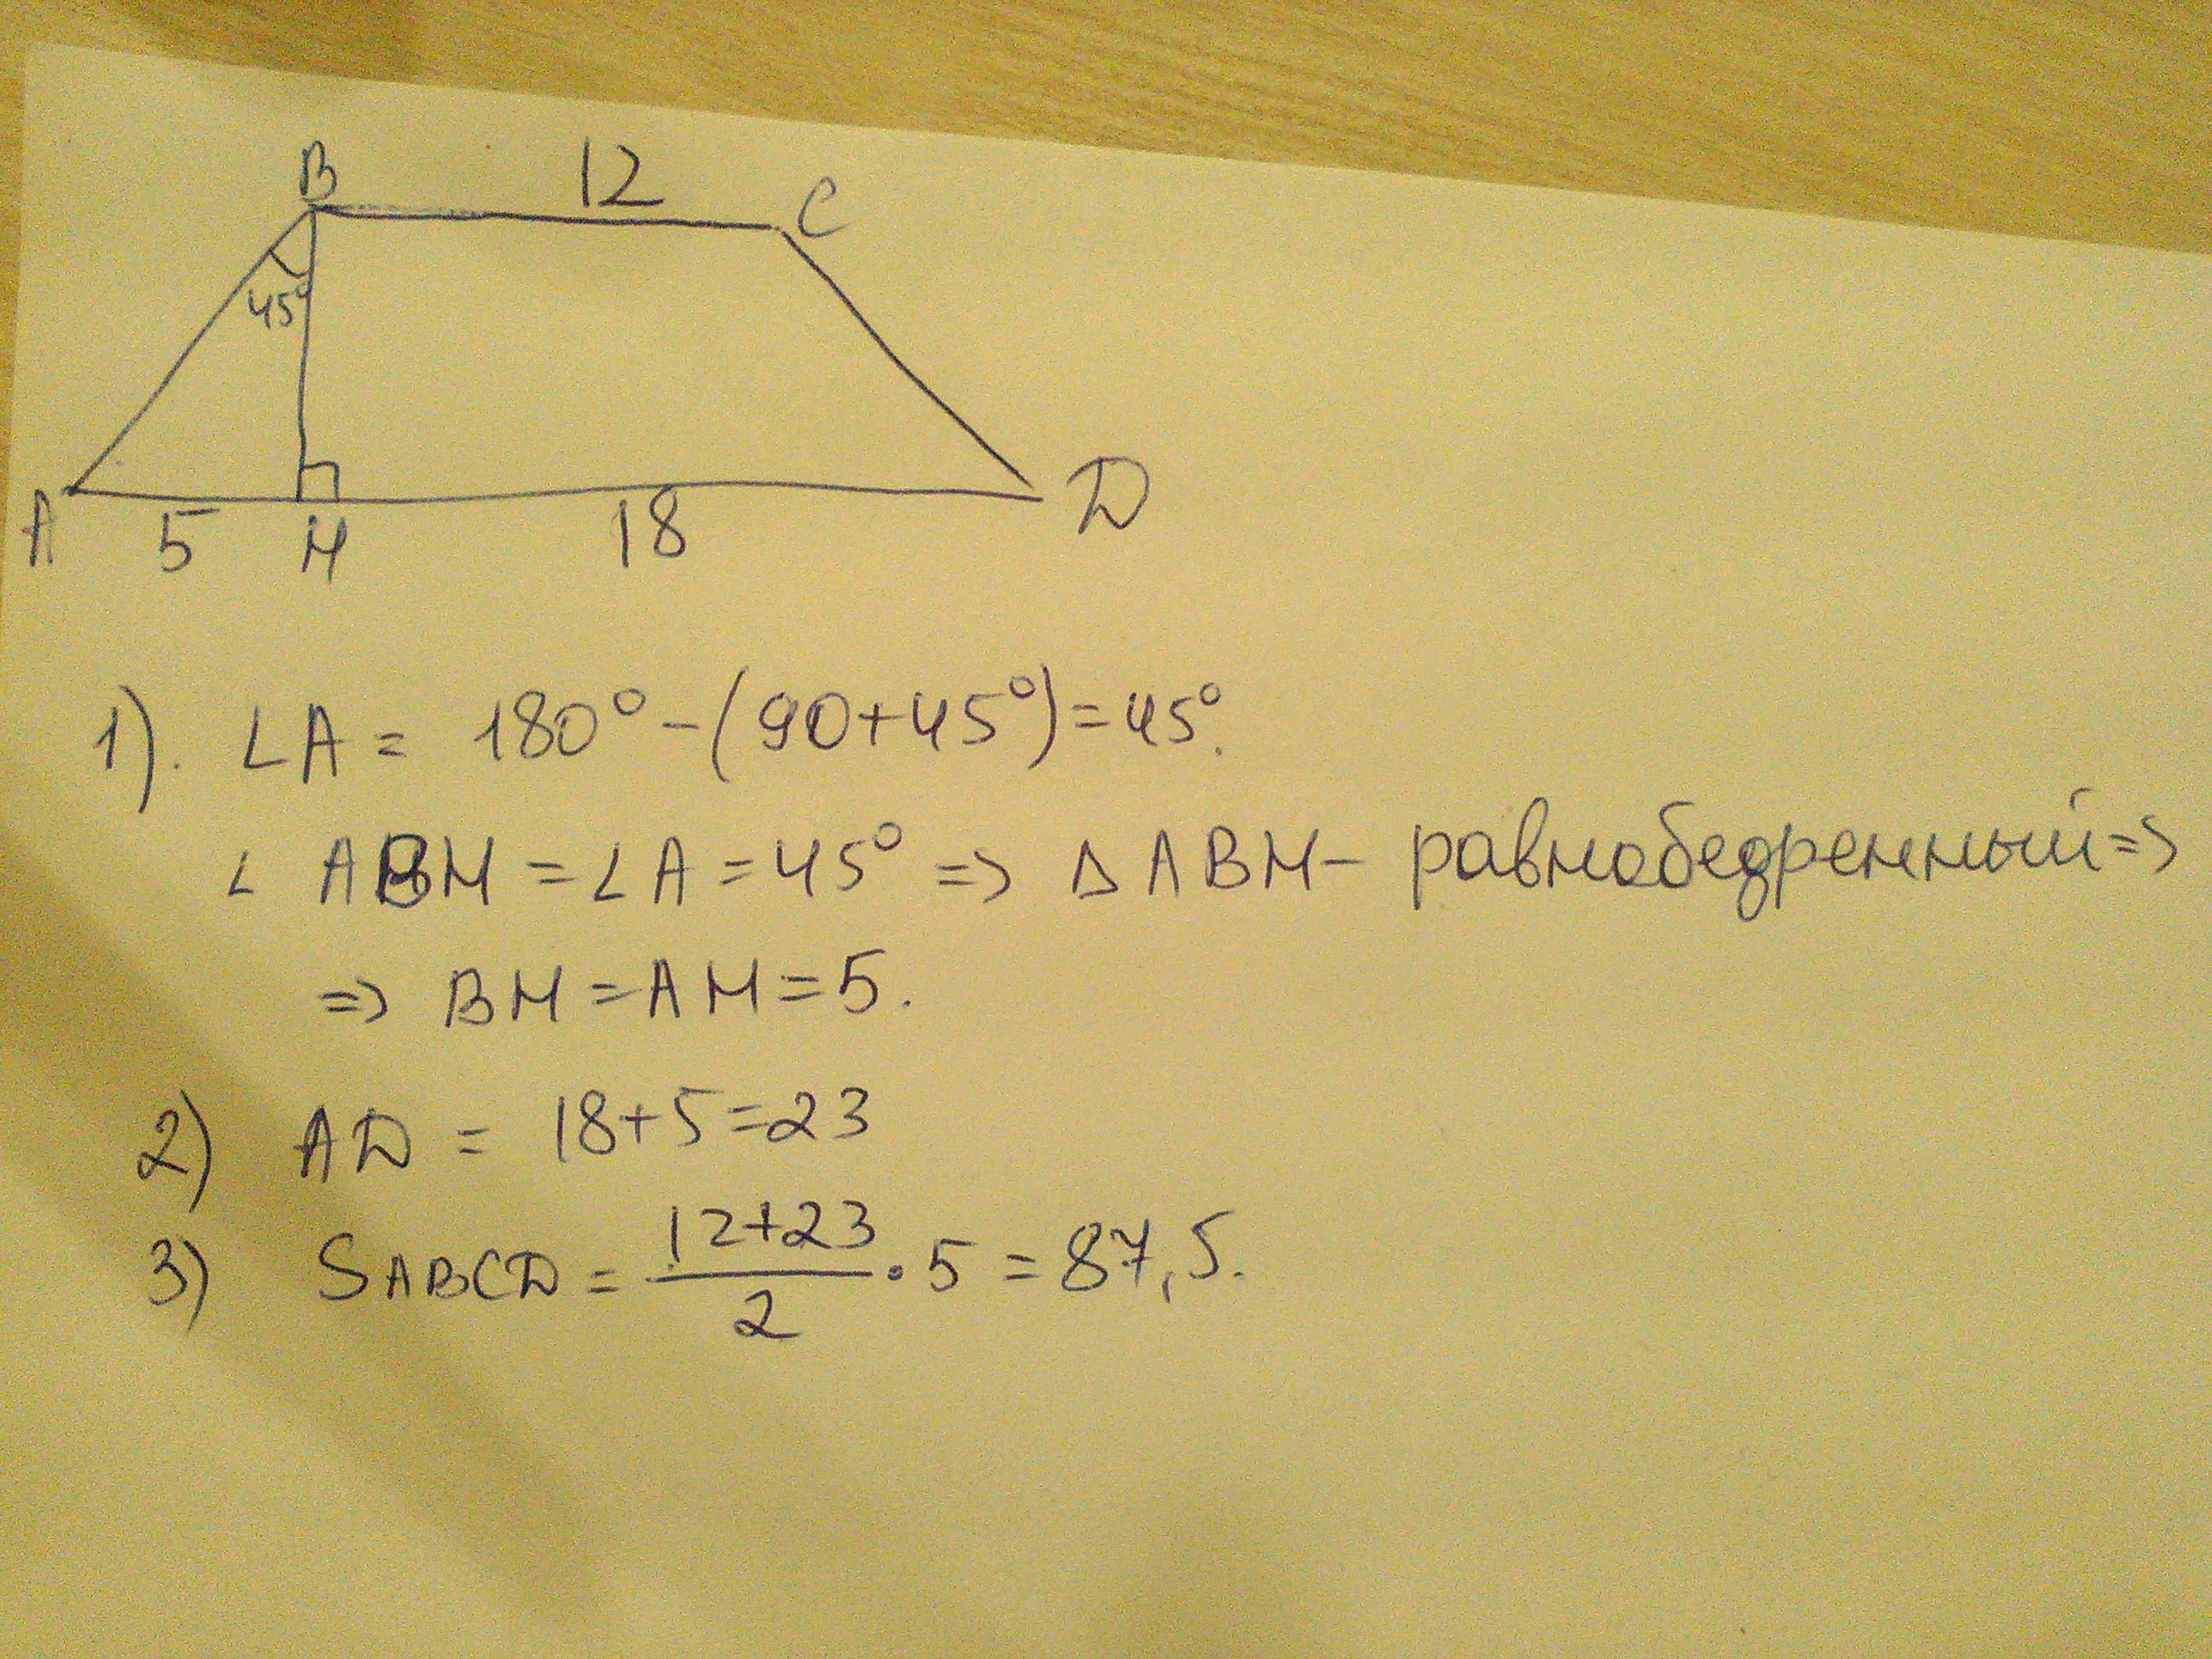 B 12 C
45°
A 5 H 18 D
1). ∠A = 180° - (90+45°) = 45°.
∠ ABH = ∠A = 45° => △ABH - равнобедренный =>
=> BH = AH = 5.
2) AD = 18+5=23
3) SABCD = \frac{12+23}{2} · 5 = 87,5.